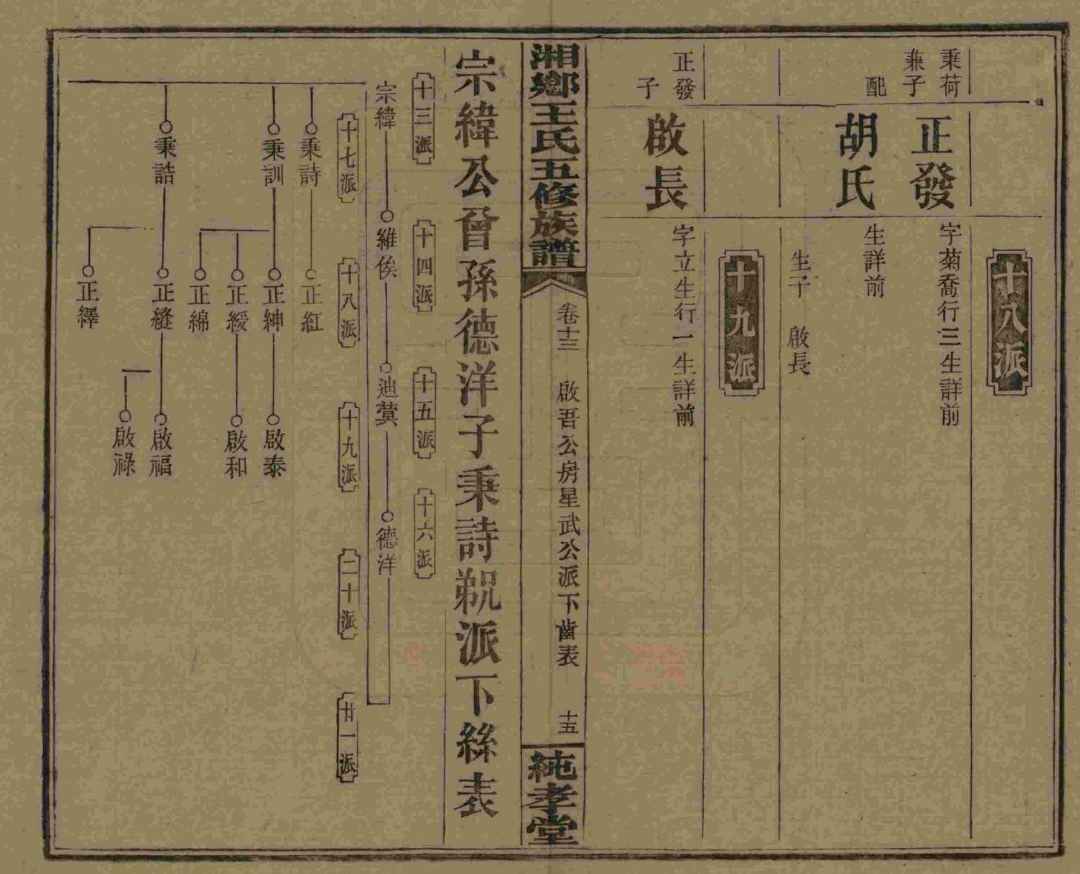 十八派
秉荷
兼子
正發
字菊喬行三生詳前
配
胡氏
生詳前
生子 啟長
十九派
正發
子
啟長
字立生行一生詳前
湘鄉王氏五修族譜
卷十三 啟吾公房星武公派下齒表 十五
純孝堂
宗緯公曾孫德洋子秉詩䂓派下絲表
十三派 十四派 十五派 十六派
宗緯 維俟 迪蓂 德洋
十七派 十八派 十九派 二十派 廿一派
秉詩 正紅
秉訓 正紳 啟泰
正綬 啟和
正綿
秉誥 正縫 啟福
啟祿
正繹